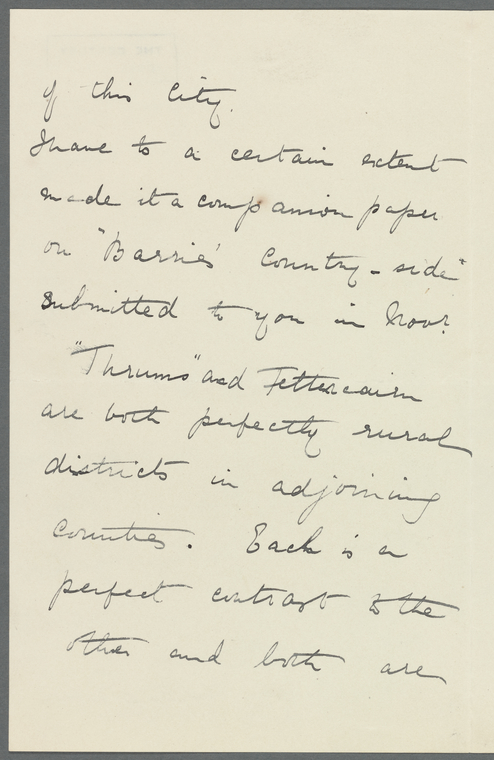 of this City.
I have to a certain extent
made it a companion paper
on "Barrie's Country-side"
submitted to you in Novr.
"Thrums" and Fettercairn
are both perfectly rural
districts in adjoining
counties. Each is a
perfect contrast to the
other and both are